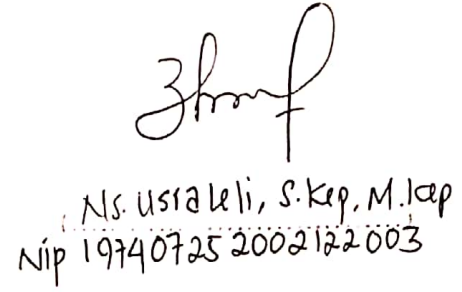 Ns. Usraleli, S.Kep, M.Kep
Nip 19740725 2002122 003